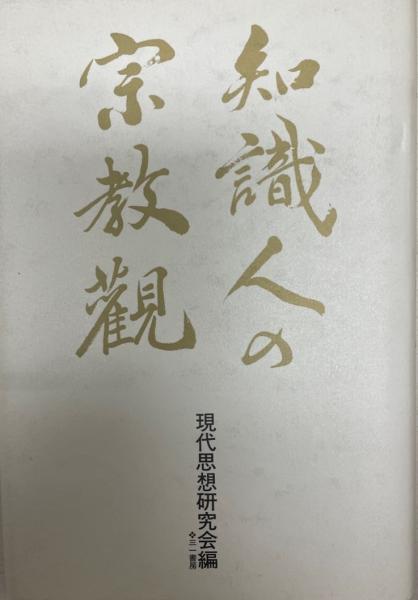 知識人の
宗教觀
現代思想研究会編
❖三一書房